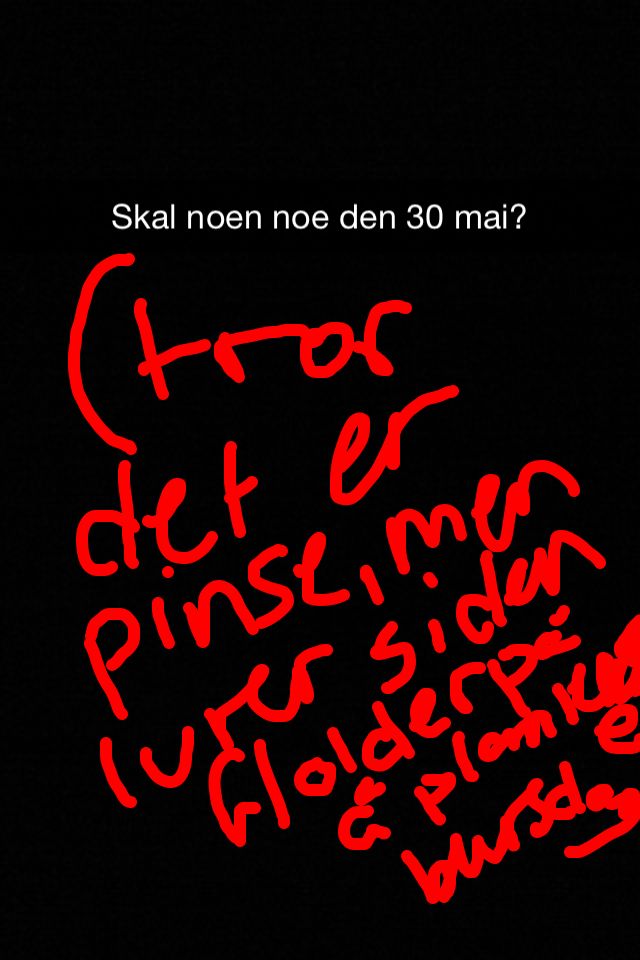 Skal noen noe den 30 mai?
(tror
det er
pinse, men
lurer siden
Holder på
å planke
bursdag